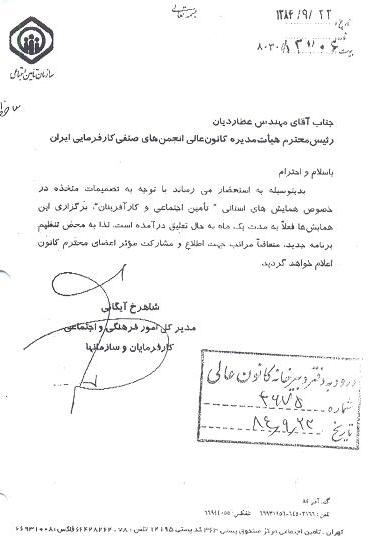 بسمه تعالی
تاریخ ۱۳۸۴/۹/۲۲
سازمان تامین اجتماعی
جناب آقای مهندس عطاردیان
رئیس محترم هیأت مدیره کانون عالی انجمن های صنفی کارفرمایی ایران
باسلام و احترام
بدینوسیله به استحضار می رساند با توجه به تصمیمات متخذه در
خصوص همایش های استانی " تأمین اجتماعی و کارآفرینان"، برگزاری این
همایش‌ها فعلاً به مدت یک ماه به حال تعلیق درآمده است. لذا به محض تنظیم
برنامه جدید، متعاقباً مراتب جهت اطلاع و مشارکت مؤثر اعضای محترم کانون
اعلام خواهد گردید.
شاهرخ آیگانی
مدیر کل امور فرهنگی و اجتماعی
کارفرمایان و سازمانها
ورود به دفتر دبیرخانه کانون عالی
شماره ۳۶۷۵
تاریخ ۸۴،۹،۲۲
تهران . تامین اجتماعی مرکز صندوق پستی ۳۶۳ کد پستی ۱۴۱۹۵